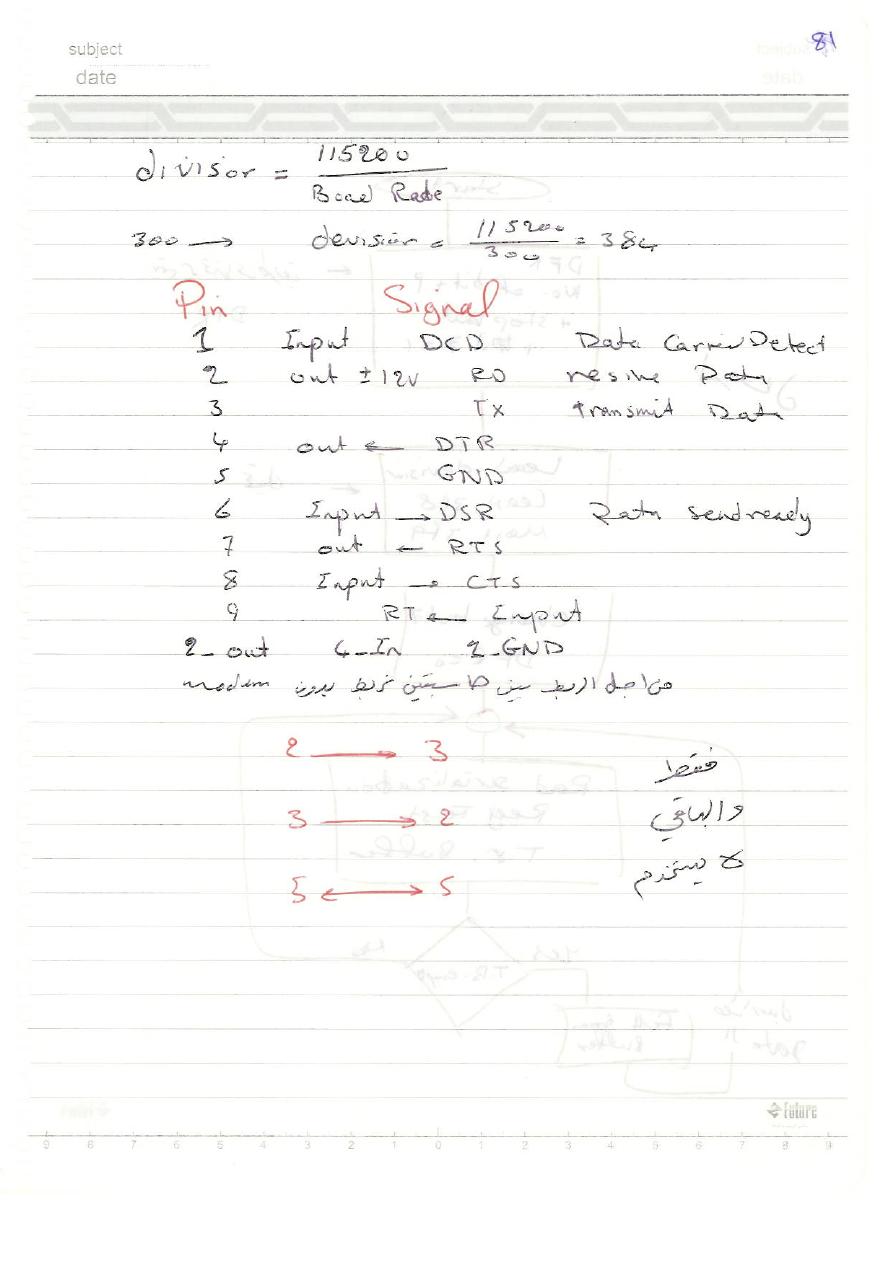 81
subject
date
divisor = 115200 / Baud Rate
300 → devision = 115200 / 300 = 384
Pin Signal
1 Input DCD Data Carrier Detect
2 out ±12v RD resive Data
3 TX transmit Data
4 out ← DTR
5 GND
6 Input → DSR Data send ready
7 out ← RTS
8 Input → CTS
9 RI ← Input
2_out 4_In 1_GND
من اجل الربط بين حاسبتين نربط بدون modem
2 → 3 فقط
3 → 2 والباقي
5 ↔ 5 لا يستخدم
future
9 8 7 6 5 4 3 2 1 0 1 2 3 4 5 6 7 8 9